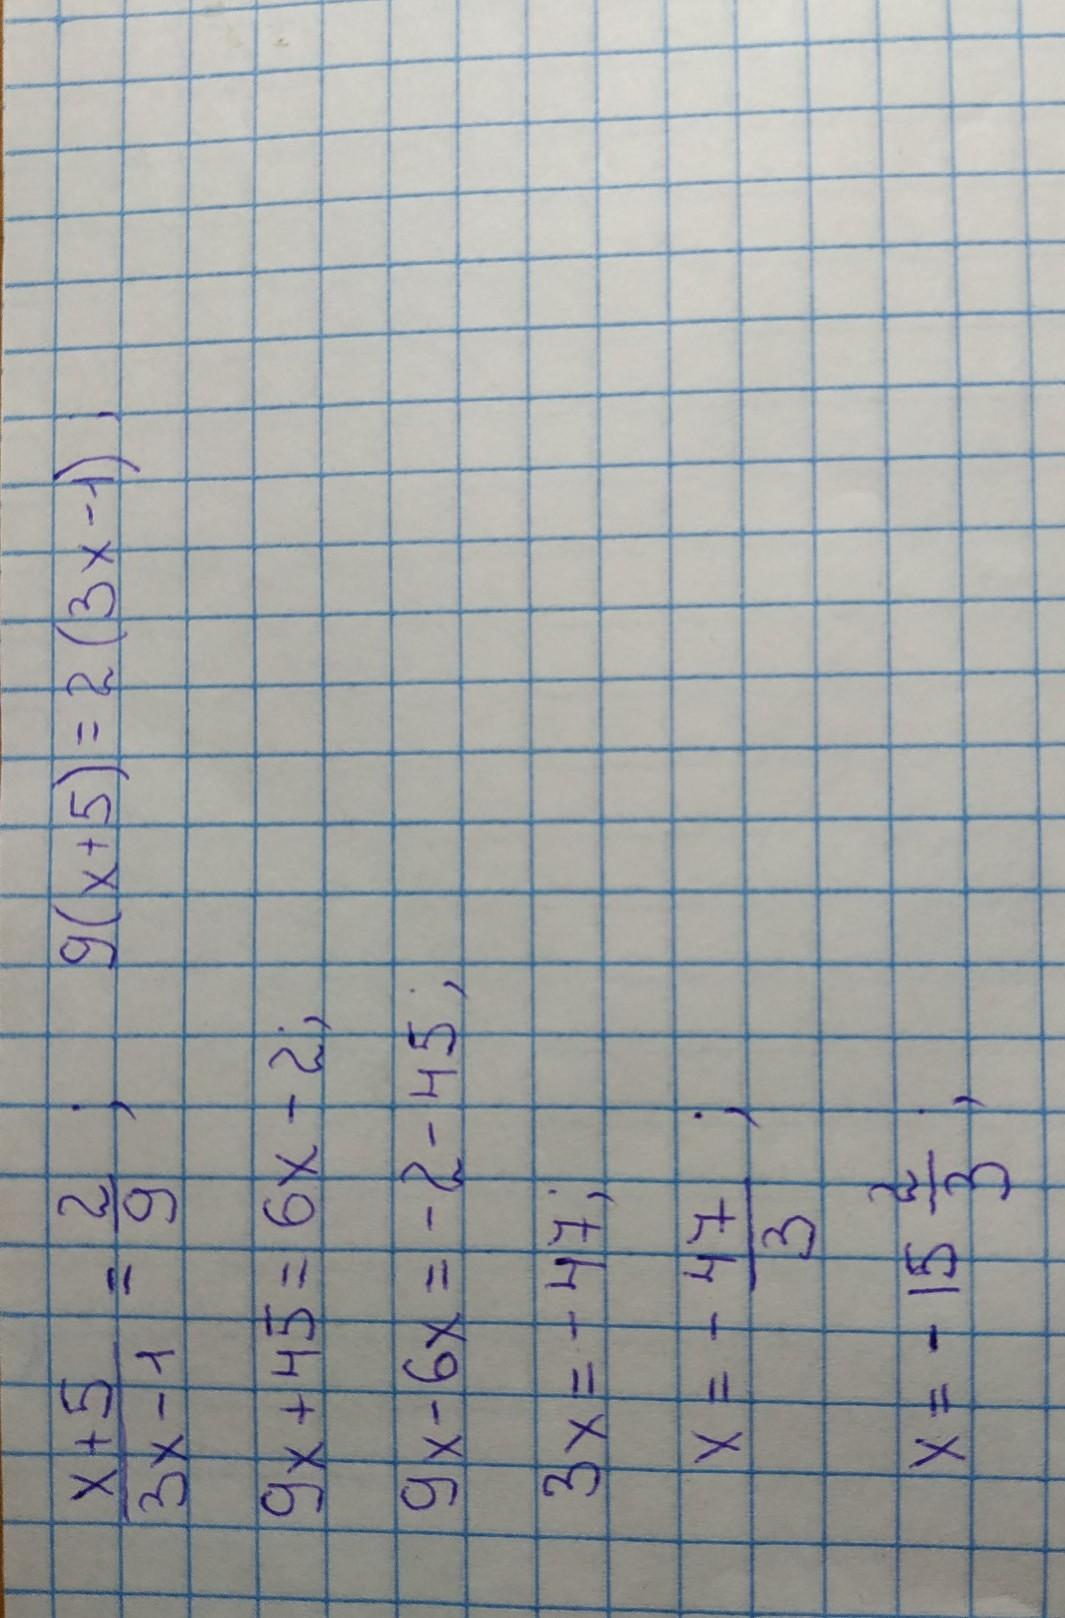 x+5/3x-1 = 2/9; 9(x+5)=2(3x-1);
9x+45=6x-2;
9x-6x=-2-45;
3x=-47;
x=-47/3;
x=-15 2/3;